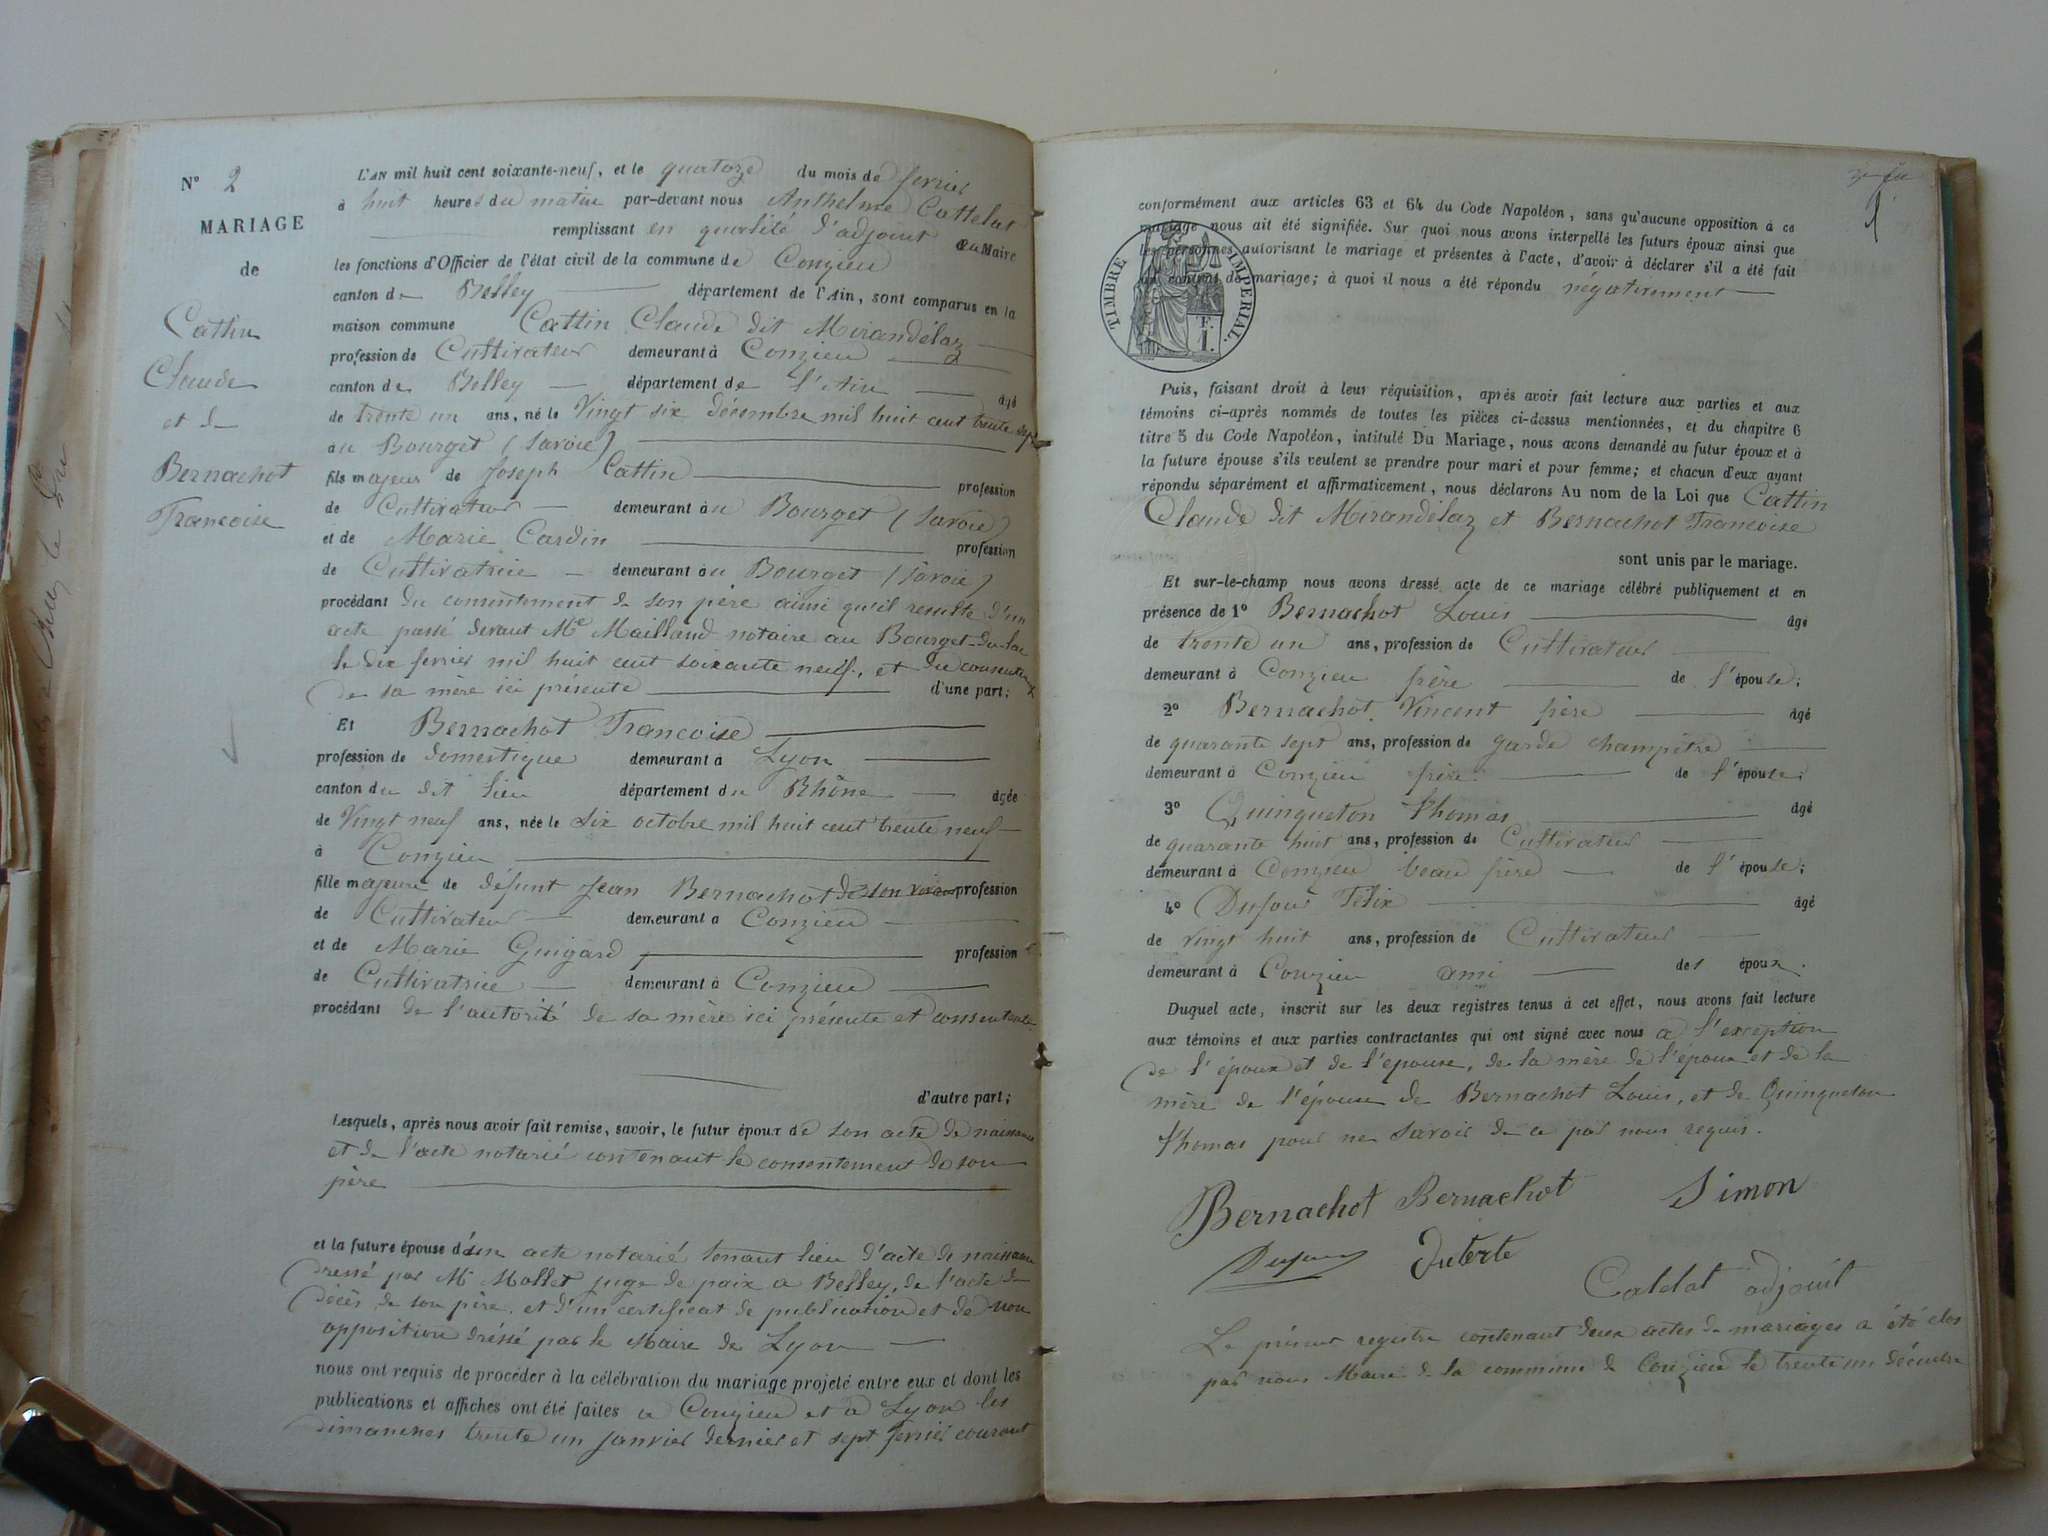 N° 2
MARIAGE
de
Cattin
Claude
et de
Bernachot
Francoise
L'AN mil huit cent soixante-neuf, et le quatorze du mois de fevrier
à huit heures du matin par-devant nous Anthelme Cattelat
remplissant en qualité d'adjoint au Maire
les fonctions d'Officier de l'état civil de la commune de Conzieu
canton de Belley département de l'Ain, sont comparus en la
maison commune Cattin Claude dit Mirandélaz
profession de Cultivateur demeurant à Conzieu
canton de Belley département de l'Ain âgé
de trente un ans, né le Vingt six décembre mil huit cent trente sept
au Bourget (Savoie)
fils majeur de Joseph Cattin profession
de Cultivateur demeurant au Bourget (Savoie)
et de Marie Cardin profession
de Cultivatrice demeurant au Bourget (Savoie)
procédant du consentement de son père ainsi qu'il resulte d'un
acte passé devant Me Mailland notaire au Bourget-du-lac
le dix fevrier mil huit cent soixante neuf, et du consentement
de sa mère ici présente d'une part;
Et Bernachot Francoise
profession de domestique demeurant à Lyon
canton du dit lieu département du Rhône âgée
de Vingt neuf ans, née le six octobre mil huit cent trente neuf
à Conzieu
fille majeure de défunt Jean Bernachot de son vivant profession
de Cultivateur demeurant à Conzieu
et de Marie Guigard profession
de Cultivatrice demeurant à Conzieu
procédant de l'autorité de sa mère ici présente et consentante
d'autre part;
Lesquels, après nous avoir fait remise, savoir, le futur époux de son acte de naissance
et de l'acte notarié contenant le consentement de son
père
et la future épouse d'un acte notarié tenant lieu d'acte de naissance
dressé par Mr Mollet juge de paix a Belley, de l'acte de
décès de son père, et d'un certificat de publication et de non
opposition dréssé par le Maire de Lyon
nous ont requis de procéder à la célébration du mariage projeté entre eux et dont les
publications et affiches ont été faites a Conzieu et à Lyon les
dimanches trente un janvier dernier et sept fevrier courant
conformément aux articles 63 et 64 du Code Napoléon, sans qu'aucune opposition à ce
mariage nous ait été signifiée. Sur quoi nous avons interpellé les futurs époux ainsi que
les personnes autorisant le mariage et présentes à l'acte, d'avoir à déclarer s'il a été fait
un contrat de mariage; à quoi il nous a été répondu négativement
TIMBRE IMPERIAL.
F.
1.
Puis, faisant droit à leur réquisition, après avoir fait lecture aux parties et aux
témoins ci-après nommés de toutes les pièces ci-dessus mentionnées, et du chapitre 6
titre 5 du Code Napoléon, intitulé Du Mariage, nous avons demandé au futur époux et à
la future épouse s'ils veulent se prendre pour mari et pour femme; et chacun d'eux ayant
répondu séparément et affirmativement, nous déclarons Au nom de la Loi que Cattin
Claude dit Mirandélaz et Bernachot Francoise
sont unis par le mariage.
Et sur-le-champ nous avons dressé acte de ce mariage célébré publiquement et en
présence de 1° Bernachot Louis âgé
de trente un ans, profession de Cultivateur
demeurant à Conzieu frère de l'épouse;
2° Bernachot Vincent frère âgé
de quarante sept ans, profession de garde champêtre
demeurant à Conzieu frère de l'épouse;
3° Quinqueton Thomas âgé
de quarante huit ans, profession de Cultivateur
demeurant à Conzieu beau frère de l'épouse;
4° Dufour Félix âgé
de vingt huit ans, profession de Cultivateur
demeurant à Conzieu ami de l'époux.
Duquel acte, inscrit sur les deux registres tenus à cet effet, nous avons fait lecture
aux témoins et aux parties contractantes qui ont signé avec nous à l'exception
de l'époux et de l'épouse, de la mère de l'époux et de la
mère de l'épouse de Bernachot Louis, et de Quinqueton
Thomas pour ne savoir de ce par nous requis.
Bernachot Bernachot Simon
Dufour Duterte
Catelat adjoint
Le présent registre contenant deux actes de mariages a été clos
par nous Maire de la commune de Conzieu le trente un décembre